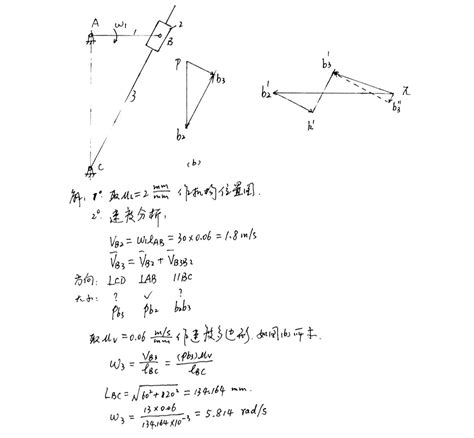 A
ω1
1
B
2
3
C
P
b3
b2
(b)
b2'
b3'
π
k'
b3''
解: 1°. 取μL=2 mm/mm 作机构位置图.
2°. 速度分析:
VB2 = ω1lAB = 30×0.06 = 1.8 m/s
V̄B3 = V̄B2 + V̄B3B2
方向: ⊥CD ⊥AB ∥BC
大小: ? ✓ ?
pb3 pb2 b2b3
取μv = 0.06 m/s/mm 作速度多边形, 如图(b)所示.
ω3 = VB3/lBC = (pb3)μv/lBC
LBC = √60²+120² = 134.164 mm.
ω3 = 13×0.06/134.164×10⁻³ = 5.814 rad/s